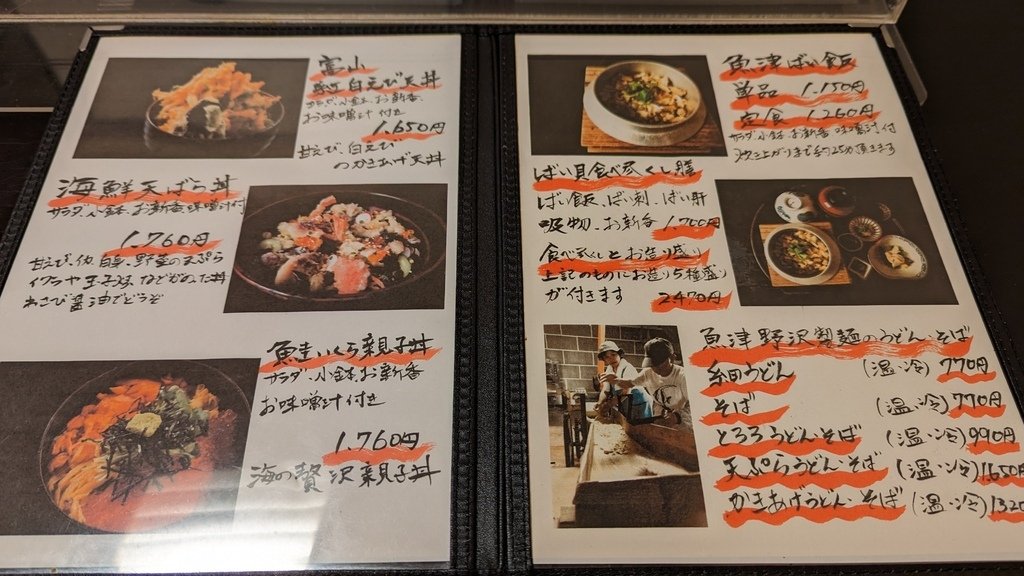 富山
紅白えび天丼
サラダ、小鉢、お新香、
お味噌汁 付き
1.650円
甘えび、白えび
のかきあげ天丼
海鮮天ばら丼
サラダ、小鉢、お新香、味噌汁付
1.760円
甘えび、他、白身、野菜の天ぷら
イクラや玉子
などで
た丼
わさび醤油でどうぞ
いくら親子丼
サラダ、小鉢、お新香
お味噌汁付き
1.760円
海の贅沢親子丼
魚津ばい飯
単品 1.150円
定食 1.260円
サラダ、小鉢、お新香、味噌汁付
炊き上がりまで約25分頂きます
ばい貝食べ尽くし膳
ばい飯、ばい刺、ばい肝
吸物、お新香 1.700円
食べ尽くしとお造り盛り
上記のものにお造り5種盛り
が付きます 2.470円
魚津野沢製麺のうどん、そば
糸田うどん (温・冷) 770円
そば (温・冷) 770円
とろろうどん、そば (温・冷) 990円
天ぷらうどん、そば (温・冷) 1.650円
かきあげうどん、そば (温・冷) 1320